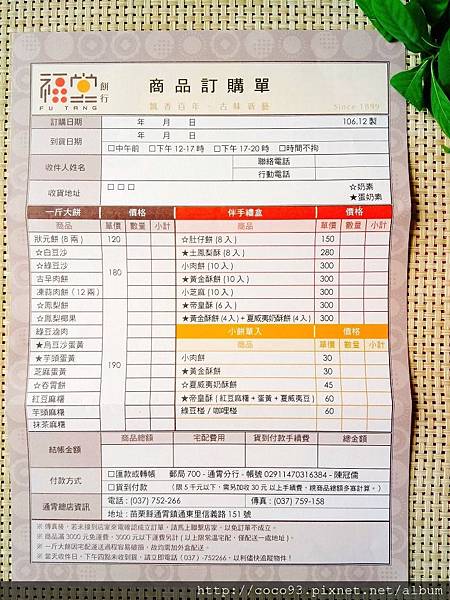 福堂餅行
FU TANG
商品訂購單
飄香百年‧古味新藝
Since 1899
訂購日期 年 月 日 106.12 製
到貨日期 年 月 日
□中午前 □下午12-17時 □下午17-20時 □時間不拘
收件人姓名 聯絡電話
行動電話
收貨地址 □□□ ☆奶素
★蛋奶素
一斤大餅 價格 伴手禮盒 價格
商品 單價 數量 小計 商品 單價 數量 小計
狀元餅 (8 兩) 120 ☆肚仔餅 (8 入) 150
☆白豆沙 180 ★土鳳梨酥 (8 入) 280
☆綠豆沙 小肉餅 (10 入) 300
古早肉餅 ★黃金酥餅 (10 入) 300
凍蒜肉餅 (12兩) 小芝麻 (10 入) 300
☆鳳梨餅 190 ★帝皇酥 (6 入) 300
☆鳳梨椰果 ★黃金酥餅 (4入) + 夏威夷奶酥餅 (4入) 300
綠豆滷肉 小餅單入 價格
★烏豆沙蛋黃 商品 單價 數量 小計
★芋頭蛋黃 小肉餅 30
芝麻蛋黃 ★黃金酥餅 30
☆舂胃餅 ☆夏威夷奶酥餅 45
紅豆麻糬 ★帝皇酥 ( 紅豆麻糬 + 蛋黃 + 夏威夷豆 ) 60
芋頭麻糬 綠豆椪 / 咖哩椪 60
抹茶麻糬
結帳金額 商品總額 宅配費用 貨到付款手續費 總金額
付款方式 □匯款或轉帳 郵局 700 - 通霄分行 - 帳號 02911470316384 - 陳冠儒
□貨到付款 (限5千元以下,需另加收30元以上手續費,視商品總額多寡計算。)
通霄總店資訊 電話 : (037) 752-266 傳真 : (037) 759-158
地址 : 苗栗縣通霄鎮通東里信義路 151 號
※ 傳真後,若未接到店家來電確認成立訂單,請馬上聯繫店家,以免訂單不成立。
※ 商品滿 3000 元免運費,3000 元以下運費另計 ( 以上限常溫宅配,僅配送一處地址 )。
※ 一斤大餅因宅配運送過程容易破損,故均需加外盒配送。
※ 當天收件日,下午四點未收到貨,請立即電話 (037)-752266,以利儘快追蹤物件!
http://coco93.pixnet.net/album